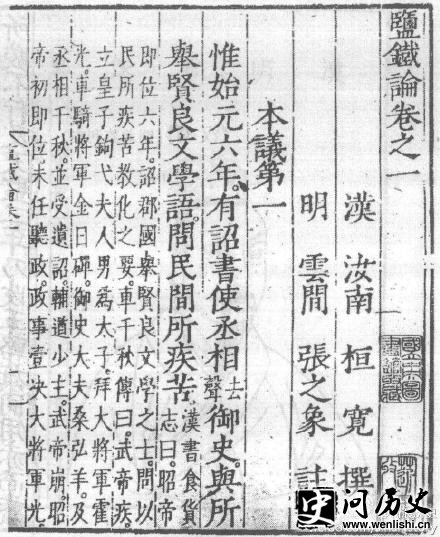 鹽鐵論卷之一
漢 汝南 桓寬 撰
明 雲間 張之象 註
本議第一
惟始元六年。有詔書使丞相去聲御史。與所
舉賢良文學語。問民間所疾苦。漢書食貨志曰。昭帝
即位六年。詔郡國舉賢良文學之士。問以
民所疾苦。教化之要。車千秋傳曰。武帝疾。
立皇子鉤弋夫人男為太子。拜大將軍霍
光。車騎將軍金日磾。御史大夫桑弘羊。及
丞相千秋。並受遺詔。輔道少主。武帝崩。昭
帝初即位。未任聽政。政事壹決大將軍光
问历史
www.wenlishi.cn